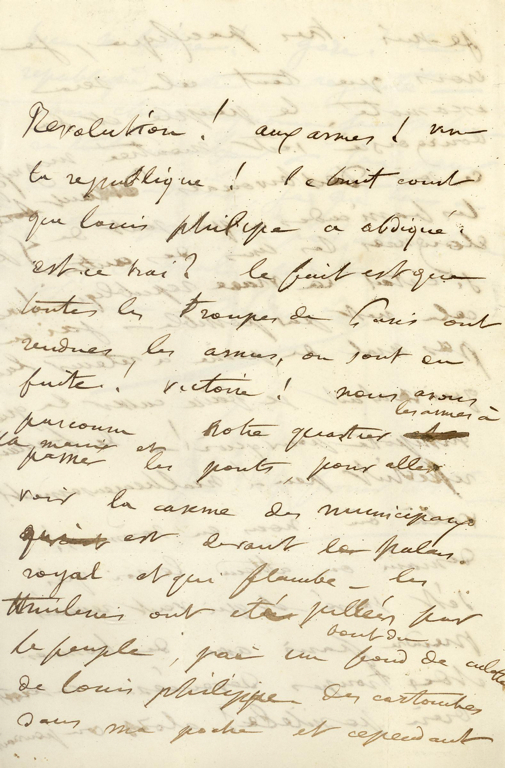 Revolution ! aux armes ! vive
la republique ! le bruit court
que louis philippe a abdiqué.
est ce vrai ? le fait est que
toutes les troupes de Paris ont
rendues les armes, ou sont en
fuite ! victoire ! nous avons
parcouru notre quartier les armes à
la main et
passer les ponts, pour aller
voir la caserne des municipaux
qui est devant le palais
royal et qui flambe _ les
thuileries ont été pillées par
le peuple, j'ai un bout du fond de culotte
de louis philippe des cartouches
dans ma poche et cependant